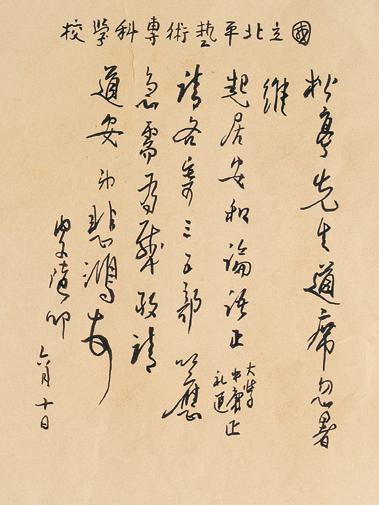 國立北平藝術專科學校
松亭先生道席忽暑
維
起居安和論語正
大學
中庸正
礼運
請各寄三五部以應
急需為感敬請
道安弟悲鴻
隨叩
六月十日